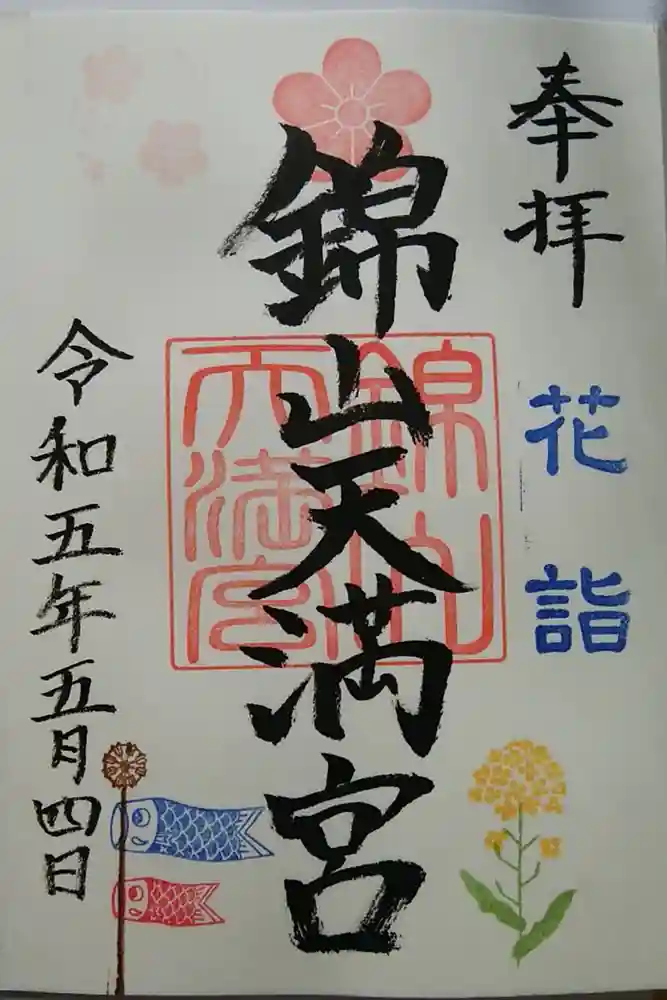 奉拝
花詣
錦山天満宮
錦山
天満宮
令和五年五月四日